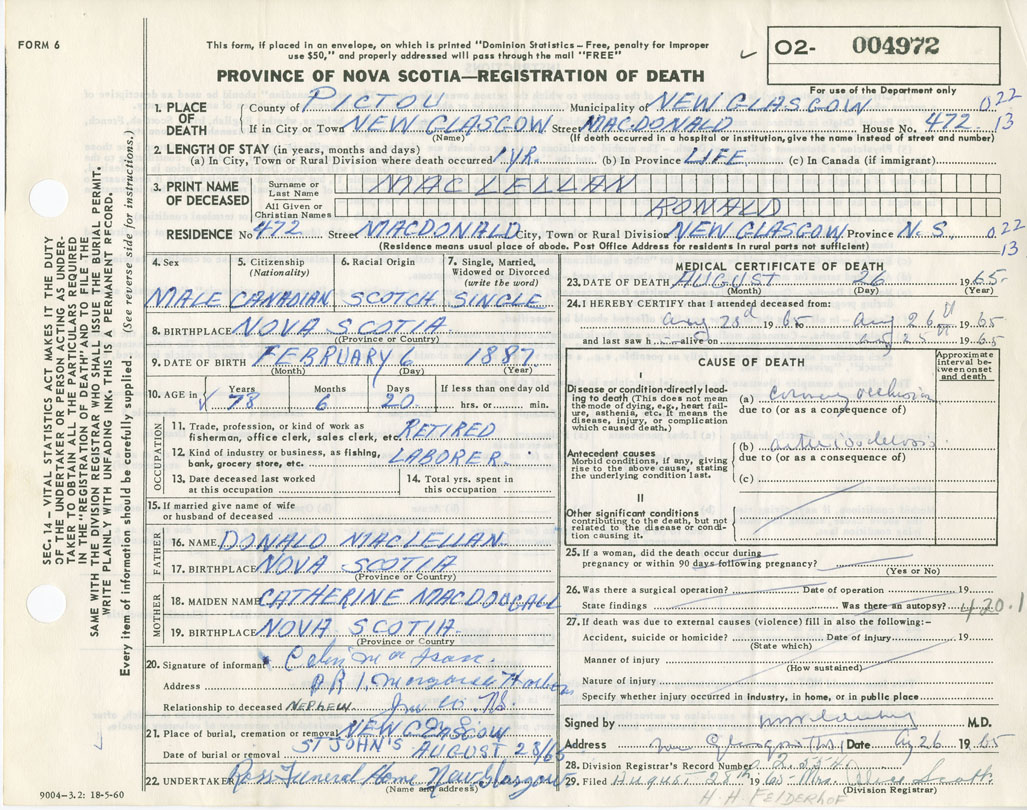 FORM 6
This form, if placed in an envelope, on which is printed "Dominion Statistics – Free, penalty for improper
use $50," and properly addressed will pass through the mail "FREE"
PROVINCE OF NOVA SCOTIA—REGISTRATION OF DEATH
02- 004972
For use of the Department only
SEC. 14 – VITAL STATISTICS ACT MAKES IT THE DUTY
OF THE UNDERTAKER OR PERSON ACTING AS UNDER-
TAKER TO OBTAIN ALL THE PARTICULARS REQUIRED
IN THE "REGISTRATION OF DEATH" AND TO FILE THE
SAME WITH THE DIVISION REGISTRAR WHO SHALL ISSUE THE BURIAL PERMIT.
WRITE PLAINLY WITH UNFADING INK. THIS IS A PERMANENT RECORD.
Every item of information should be carefully supplied. (See reverse side for instructions.)
1. PLACE OF DEATH
County of PICTOU Municipality of NEW GLASGOW 022
If in City or Town NEW GLASGOW Street MACDONALD House No. 472 13
(Name) (If death occurred in a hospital or institution, give the name instead of street and number)
2. LENGTH OF STAY (in years, months and days)
(a) In City, Town or Rural Division where death occurred 1 YR. (b) In Province LIFE (c) In Canada (if immigrant)
3. PRINT NAME OF DECEASED
Surname or Last Name MACLELLAN
All Given or Christian Names RONALD
RESIDENCE No 472 Street MACDONALD City, Town or Rural Division NEW GLASGOW Province N.S. 022
(Residence means usual place of abode. Post Office Address for residents in rural parts not sufficient) 13
4. Sex MALE
5. Citizenship (Nationality) CANADIAN
6. Racial Origin SCOTCH
7. Single, Married, Widowed or Divorced (write the word) SINGLE
8. BIRTHPLACE NOVA SCOTIA
(Province or Country)
9. DATE OF BIRTH FEBRUARY 6 1887
(Month) (Day) (Year)
10. AGE in Years 78 Months 6 Days 20 If less than one day old hrs. or min.
OCCUPATION
11. Trade, profession, or kind of work as
fisherman, office clerk, sales clerk, etc. RETIRED
12. Kind of industry or business, as fishing,
bank, grocery store, etc. LABORER.
13. Date deceased last worked at this occupation
14. Total yrs. spent in this occupation
15. If married give name of wife
or husband of deceased
FATHER
16. NAME DONALD MACLELLAN
17. BIRTHPLACE NOVA SCOTIA
(Province or Country)
MOTHER
18. MAIDEN NAME CATHERINE MACDOUGALL
19. BIRTHPLACE NOVA SCOTIA
(Province or Country)
20. Signature of informant
Address
Relationship to deceased NEPHEW
21. Place of burial, cremation or removal NEW GLASGOW
ST JOHN'S
Date of burial or removal AUGUST 28/65
22. UNDERTAKER Ross Funeral Home New Glasgow
(Name and address)
9004–3.2: 18-5-60
MEDICAL CERTIFICATE OF DEATH
23. DATE OF DEATH AUGUST 26 1965
(Month) (Day) (Year)
24. I HEREBY CERTIFY that I attended deceased from:
Aug 23rd 1965 to Aug 26th 1965
and last saw h alive on Aug 25 1965
CAUSE OF DEATH
Approximate interval between onset and death
I
Disease or condition directly leading to death (This does not mean the mode of dying, e.g., heart failure, asthenia, etc. It means the disease, injury, or complication which caused death.)
(a) coronary occlusion
due to (or as a consequence of)
Antecedent causes
Morbid conditions, if any, giving rise to the above cause, stating the underlying condition last.
(b) arteriosclerosis
due to (or as a consequence of)
(c)
II
Other significant conditions
contributing to the death, but not related to the disease or condition causing it.
25. If a woman, did the death occur during
pregnancy or within 90 days following pregnancy?
(Yes or No)
26. Was there a surgical operation? Date of operation 19
State findings Was there an autopsy? 420.1
27. If death was due to external causes (violence) fill in also the following:–
Accident, suicide or homicide? Date of injury 19
(State which)
Manner of injury
(How sustained)
Nature of injury
Specify whether injury occurred in industry, in home, or in public place
Signed by M.D.
Address New Glasgow N.S. Date Aug 26 1965
28. Division Registrar's Record Number
29. Filed August 28th 1965 Mrs. Scott
(Division Registrar)
H H FELDERHOF